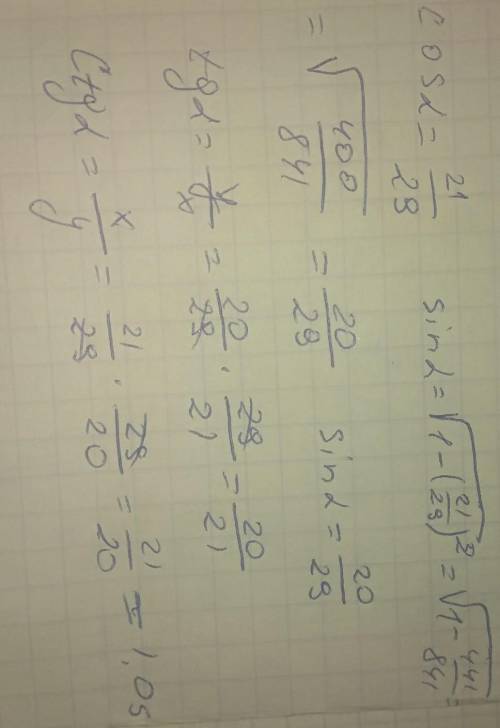 cosα = 21/29 sinα = √(1 - (21/29)²) = √(1 - 441/841) =
= √(400/841) = 20/29 sinα = 20/29
tgα = y/x = 20/29 · 29/21 = 20/21
Ctgα = x/y = 21/29 · 29/20 = 21/20 = 1,05